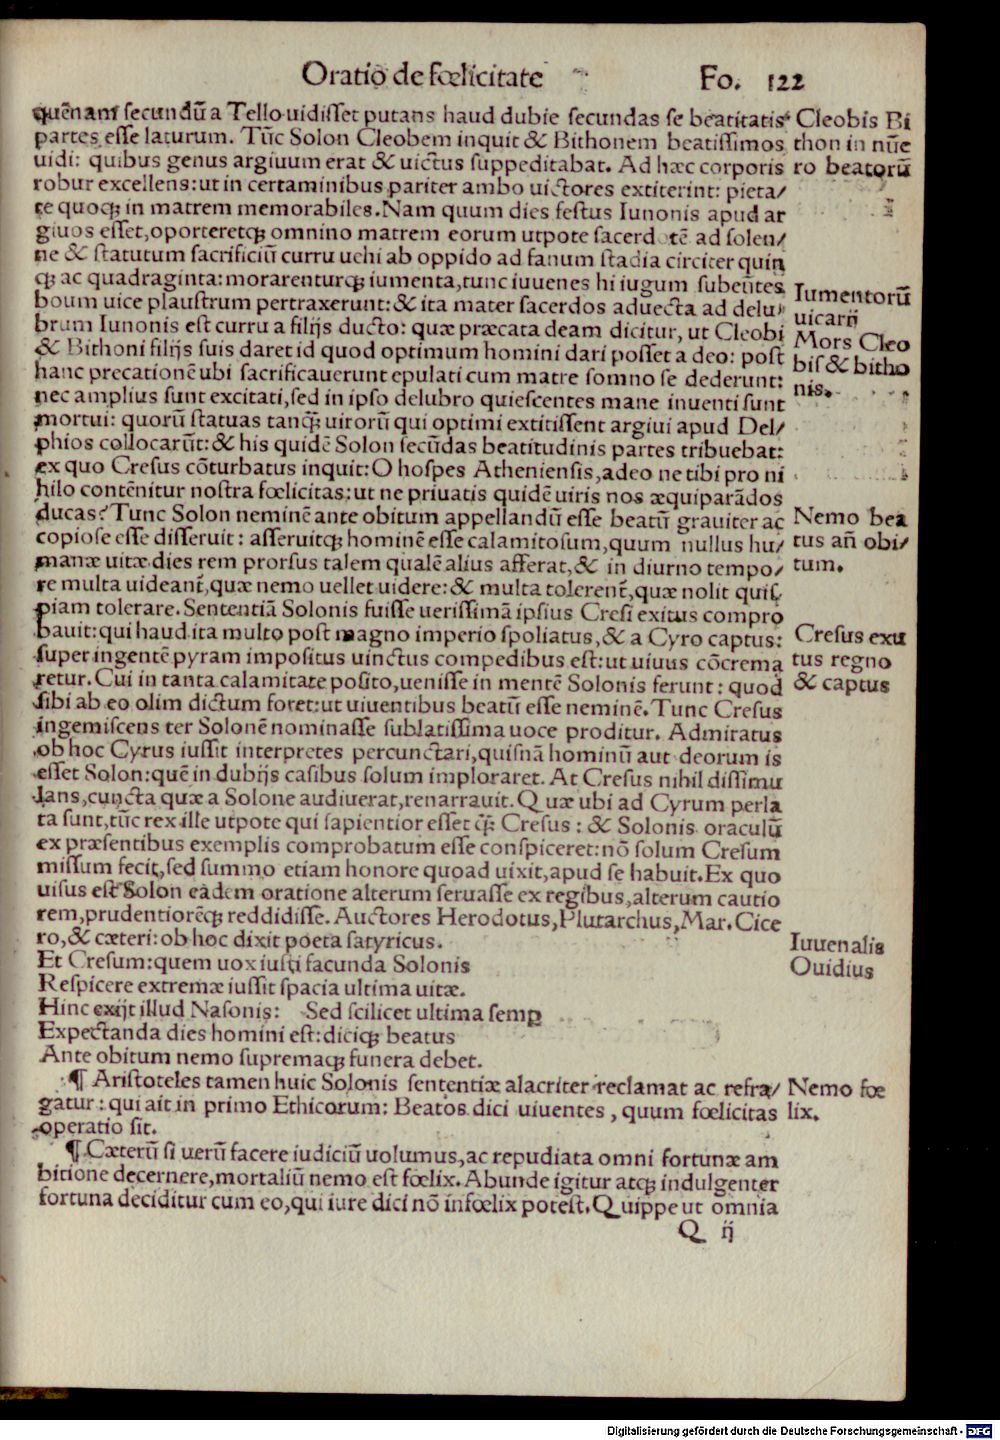 Oratio de fœlicitate Fo. 122
quēnam secundū a Tello uidisset putans haud dubie secundas se beatitatis
partes esse laturum. Tūc Solon Cleobem inquit & Bithonem beatissimos
uidi: quibus genus argiuum erat & uictus suppeditabat. Ad hæc corporis
robur excellens: ut in certaminibus pariter ambo uictores extiterint: pieta/
te quoqꝫ in matrem memorabiles. Nam quum dies festus Iunonis apud ar
giuos esset, oporteretqꝫ omnino matrem eorum utpote sacerdotē ad solen/
ne & statutum sacrificiū curru uehi ab oppido ad fanum stadia circiter quin
qꝫ ac quadraginta: morarenturqꝫ iumenta, tunc iuuenes hi iugum subeūtes
boum uice plaustrum pertraxerunt: & ita mater sacerdos aduecta ad delu/
brum Iunonis est curru a filijs ducto: quæ præcata deam dicitur, ut Cleobi
& Bithoni filijs suis daret id quod optimum homini dari posset a deo: post
hanc precationē ubi sacrificauerunt epulati cum matre somno se dederunt:
nec amplius sunt excitati, sed in ipso delubro quiescentes mane inuenti sunt
mortui: quorū statuas tanqꝫ̄ uirorū qui optimi extitissent argiui apud Del/
phios collocarūt: & his quidē Solon secūdas beatitudinis partes tribuebat:
ex quo Cresus cōturbatus inquit: O hospes Atheniensis, adeo ne tibi pro ni
hilo contēnitur nostra fœlicitas: ut ne priuatis quidē uiris nos æquiparādos
ducas? Tunc Solon neminē ante obitum appellandū esse beatū grauiter ac
copiose esse disseruit: asseruitqꝫ hominē esse calamitosum, quum nullus hu/
manæ uitæ dies rem prorsus talem qualē alius afferat, & in diurno tempo/
re multa uideant̄, quæ nemo uellet uidere: & multa tolerent̄, quæ nolit quis/
piam tolerare. Sententiā Solonis fuisse uerissimā ipsius Cresi exitus compro
bauit: qui haud ita multo post magno imperio spoliatus, & a Cyro captus:
super ingentē pyram impositus uinctus compedibus est: ut uiuus cōcrema
retur. Cui in tanta calamitate posito, uenisse in mentē Solonis ferunt: quod
sibi ab eo olim dictum foret: ut uiuentibus beatū esse neminē. Tunc Cresus
ingemiscens ter Solonē nominasse sublatissima uoce proditur. Admiratus
ob hoc Cyrus iussit interpretes percunctari, quisnā hominū aut deorum is
esset Solon: quē in dubijs casibus solum imploraret. At Cresus nihil dissimu
lans, cuncta quæ a Solone audiuerat, renarrauit. Quæ ubi ad Cyrum perla
ta sunt, tūc rex ille utpote qui sapientior esset qꝫ̄ Cresus: & Solonis oraculū
ex præsentibus exemplis comprobatum esse conspiceret: nō solum Cresum
missum fecit, sed summo etiam honore quoad uixit, apud se habuit. Ex quo
uisus est Solon eadem oratione alterum seruasse ex regibus, alterum cautio
rem, prudentiorēqꝫ reddidisse. Auctores Herodotus, Plutarchus, Mar. Cice
ro, & cæteri: ob hoc dixit poeta satyricus.
Et Cresum: quem uox iusti facunda Solonis
Respicere extremæ iussit spacia ultima uitæ.
Hinc exijt illud Nasonis: Sed scilicet ultima semꝑ
Expectanda dies homini est: diciqꝫ beatus
Ante obitum nemo supremaqꝫ funera debet.
¶ Aristoteles tamen huic Solonis sententiæ alacriter reclamat ac refra/
gatur: qui ait in primo Ethicorum: Beatos dici uiuentes, quum fœlicitas
operatio sit.
¶ Cæterū si uerū facere iudiciū uolumus, ac repudiata omni fortunæ am
bitione decernere, mortaliū nemo est fœlix. Abunde igitur atqꝫ indulgenter
fortuna deciditur cum eo, qui iure dici nō infœlix potest. Quippe ut omnia
Q ij
Cleobis Bi
thon in nūe
ro beatorū
Iumentorū
uicarij
Mors Cleo
bis & bitho
nis.
Nemo bea
tus añ obi/
tum.
Cresus exu
tus regno
& captus
Iuuenalis
Ouidius
Nemo fœ
lix.
Digitalisierung gefördert durch die Deutsche Forschungsgemeinschaft - DFG